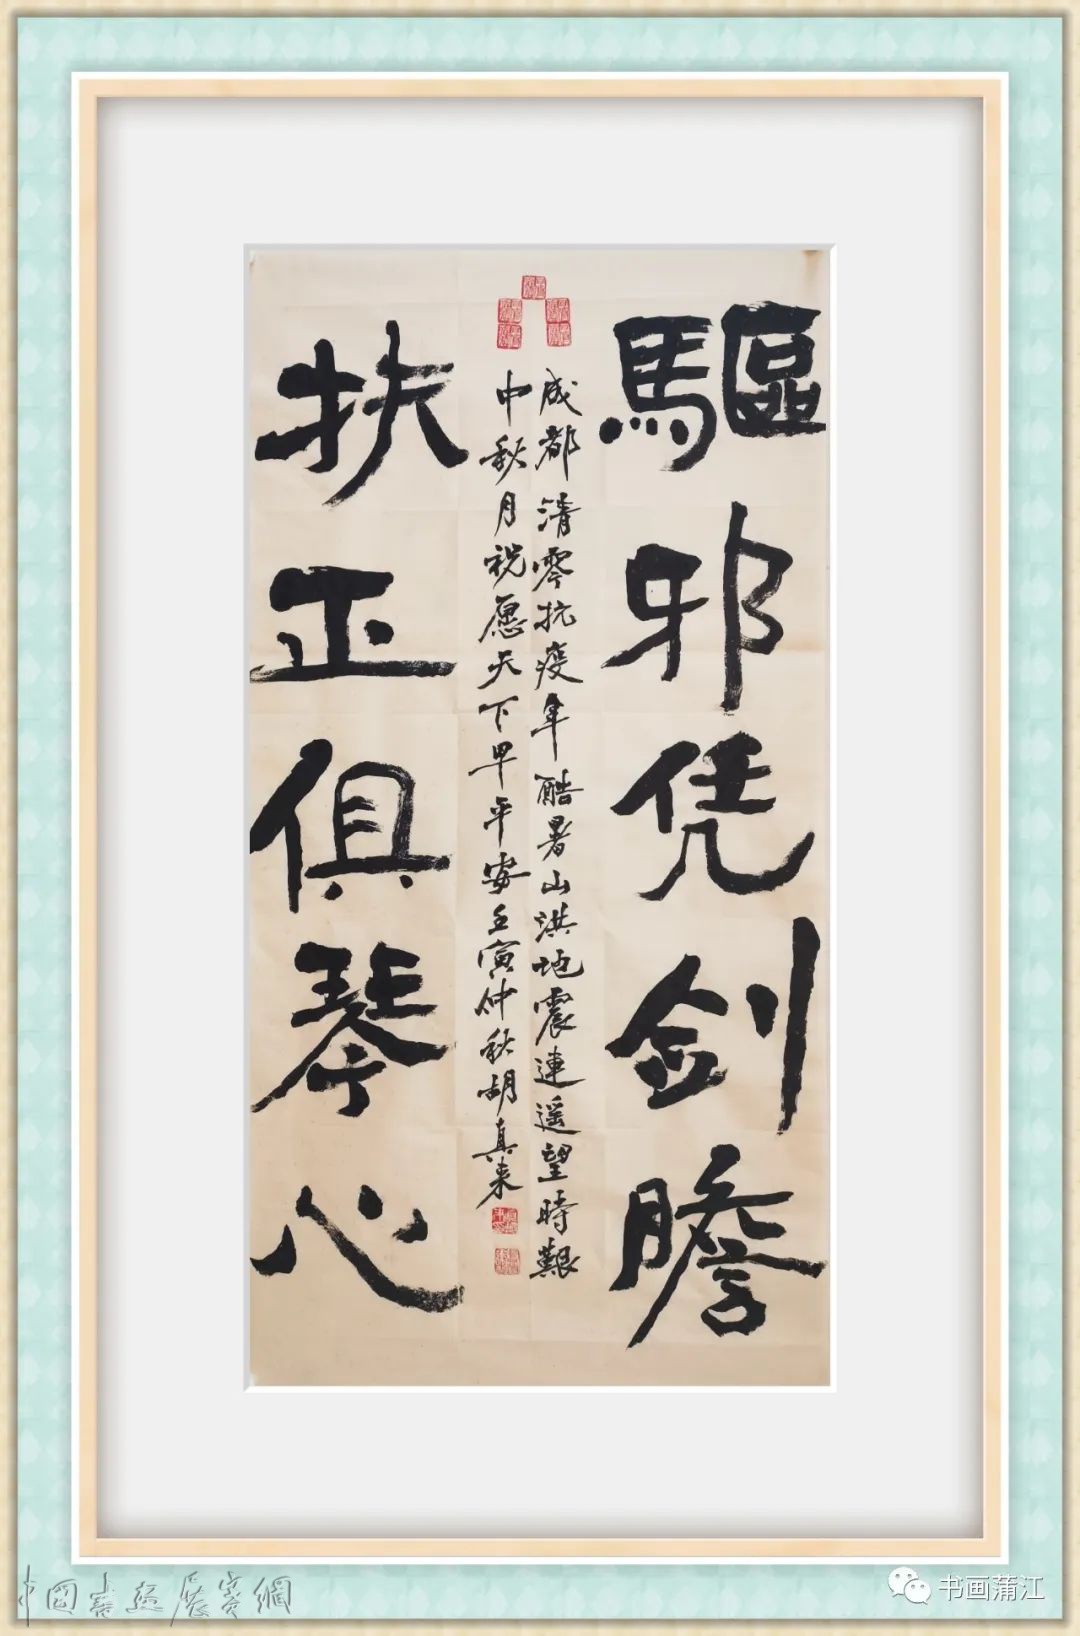 驅邪凭剑膽
成都清零抗疫年酷暑山洪地震連遥望時艱
中秋月祝愿天下早平安壬寅仲秋胡真来
扶正俱琴心
中国书画展赛網
书画蒲江